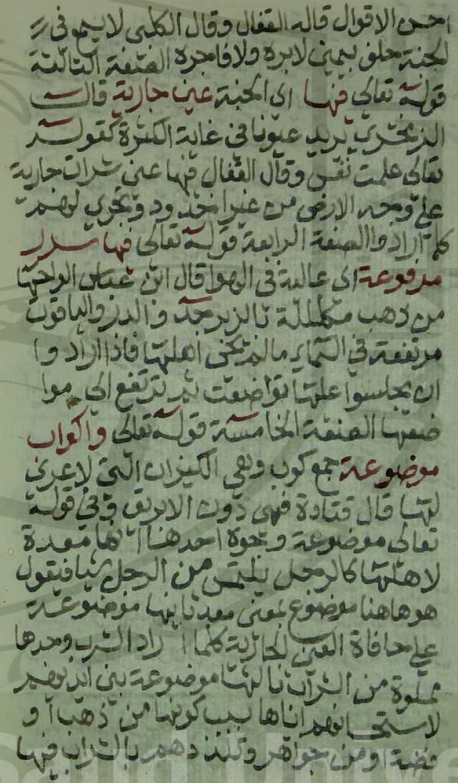 احسن الاقوال قاله القفال وقال الكلبي لا يسمع في
الجنة حالف بيمين لا برة ولا فاجرة الصفة الثالثة
قوله تعالى فيها اى الجنة عين جارية قال
الزمخشري يريد عيونا في غاية الكثرة كقوله
تعالى علمت نفس وقال القفال فيها عين شراب جارية
على وجه الارض من غير اخدود وتجري لهم
كما ارادوا الصفة الرابعة قوله تعالى فيها سرر
مرفوعة اى عالية في الهوا قال ابن عباس الواحها
من ذهب مكللة بالزبرجد والدر والياقوت
مرتفعة في السماء ما لم يجئ اهلها فاذا ارادوا
ان يجلسوا عليها تواضعت ثم ترتفع الى موا
ضعها الصفة الخامسة قوله تعالى واكواب
موضوعة جمع كوب وهي الكيزان التي لا عرى
لها قال قتادة فهي دون الابريق وفي قوله
تعالى موضوعة وجوه احدها انها معدة
لاهلها كالرجل يلتمس من الرجل شيا فيقول
هو هاهنا موضوع بمعنى معد ثانيها موضوعة
على حافاة العين الجارية كلما اراد الشرب وجدها
مملوة من الشراب ثالثها موضوعة بين ايديهم
لاستحسانهم اياها بسبب كونها من ذهب او
فضة او من جواهر وتلذذهم بالشراب فيها